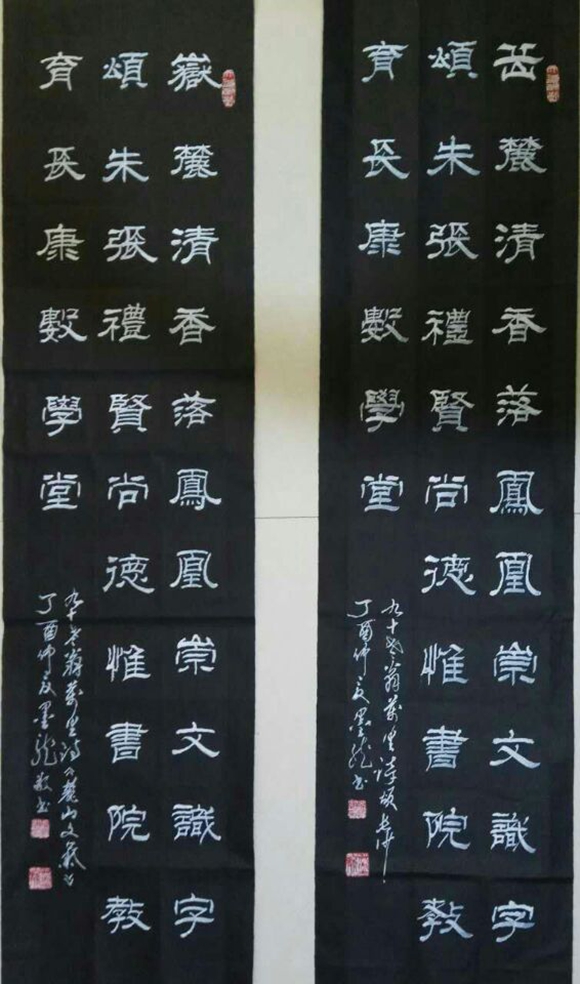 岳麓清香落鳳凰崇文識字
頌朱張禮賢尚德惟書院教
育長康數學堂
九十翁萬里
丁酉仲夏墨龙书
嶽麓清香落鳳凰崇文識字
頌朱張禮賢尚德惟書院教
育長康數學堂
九十翁萬里诗麓山文
丁酉仲夏墨龙敬书